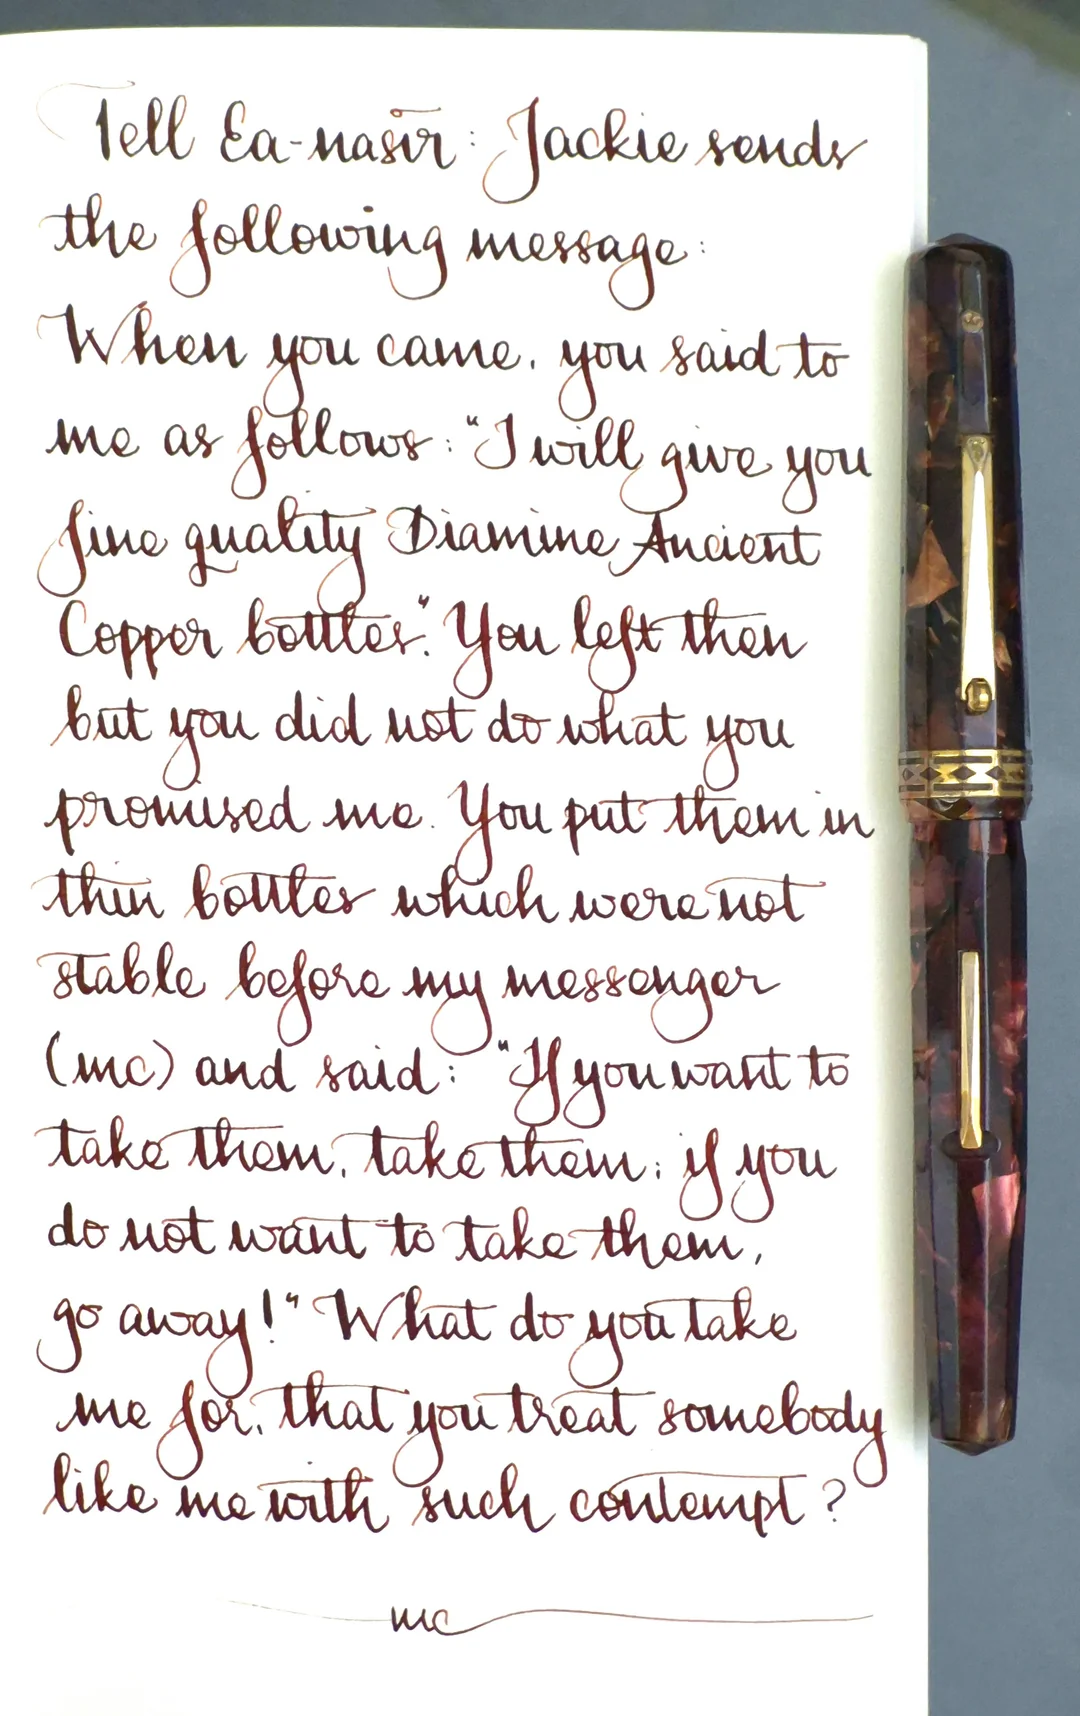 Tell Ea-nasir: Jackie sends
the following message:
When you came, you said to
me as follows: "I will give you
fine quality Diamine Ancient
Copper bottles". You left then
but you did not do what you
promised me. You put them in
thin bottles which were not
stable before my messenger
(mc) and said: "If you want to
take them, take them; if you
do not want to take them,
go away!" What do you take
me for, that you treat somebody
like me with such contempt?
mc